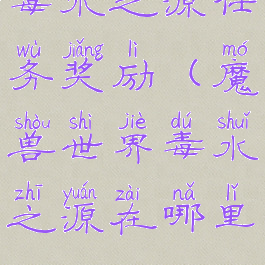 毒水之源在
wù jiǎng lì mó
务奖励（魔
shòu shì jiè dú shuǐ
兽世界毒水
zhī yuán zài nǎ lǐ
之源在哪里